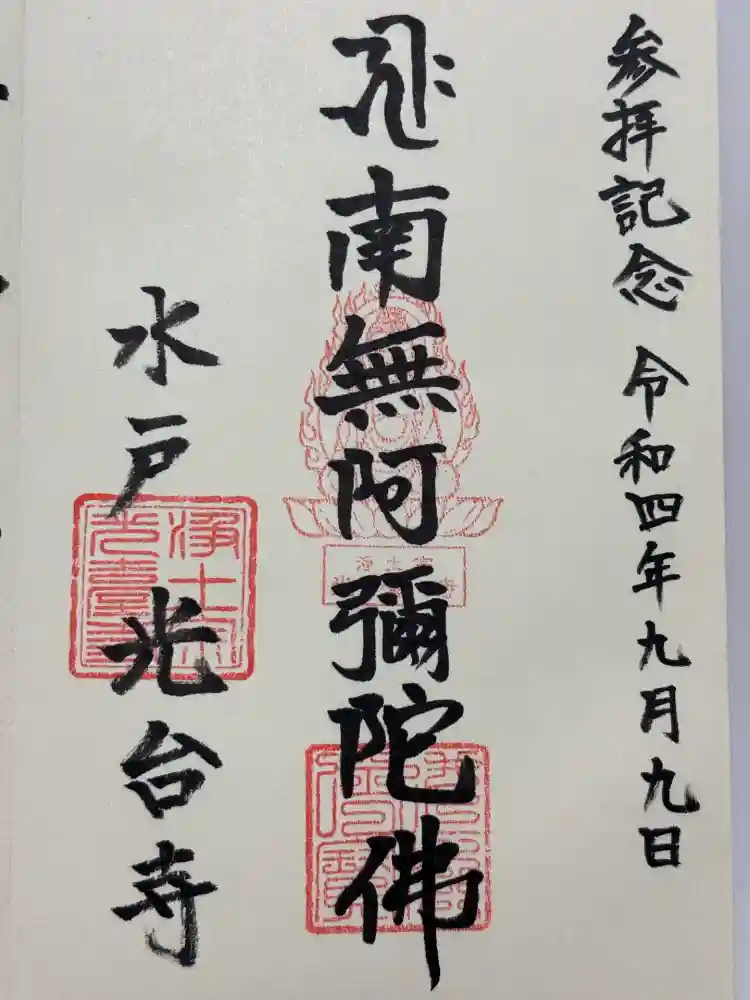 参拝記念 令和四年九月九日
南無阿彌陀佛
浄土宗
水戸 光台寺
浄土宗光臺寺